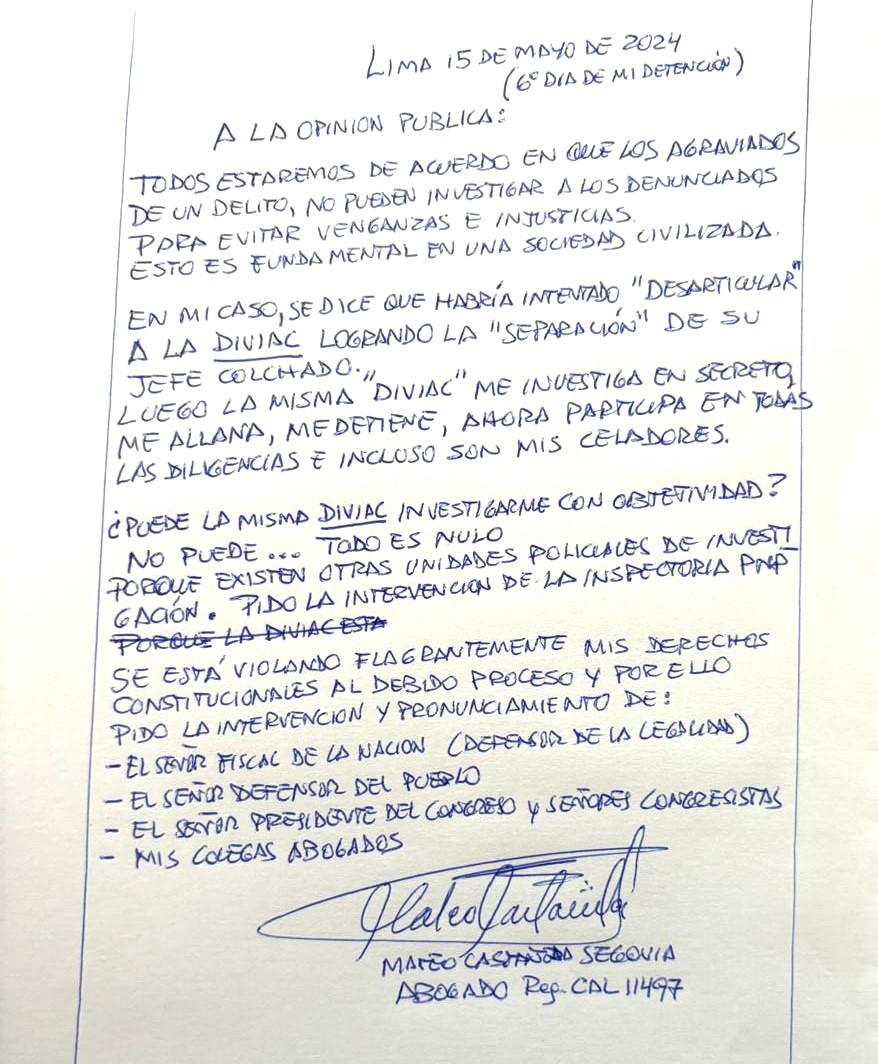 LIMA 15 DE MAYO DE 2024
(6° DIA DE MI DETENCIÓN)
A LA OPINION PUBLICA:
TODOS ESTAREMOS DE ACUERDO EN QUE LOS AGRAVIADOS
DE UN DELITO, NO PUEDEN INVESTIGAR A LOS DENUNCIADOS
PARA EVITAR VENGANZAS E INJUSTICIAS.
ESTO ES FUNDAMENTAL EN UNA SOCIEDAD CIVILIZADA.
EN MI CASO, SE DICE QUE HABRÍA INTENTADO "DESARTICULAR"
A LA DIVIAC LOGRANDO LA "SEPARACIÓN" DE SU
JEFE COLCHADO.
LUEGO LA MISMA "DIVIAC" ME INVESTIGA EN SECRETO,
ME ALLANA, ME DETIENE, AHORA PARTICIPA EN TODAS
LAS DILIGENCIAS E INCLUSO SON MIS CELADORES.
¿PUEDE LA MISMA DIVIAC INVESTIGARME CON OBJETIVIDAD?
NO PUEDE... TODO ES NULO
PORQUE EXISTEN OTRAS UNIDADES POLICIALES DE INVESTI
GACIÓN. PIDO LA INTERVENCION DE LA INSPECTORIA PNP
PORQUE LA DIVIAC ESTA
SE ESTÁ VIOLANDO FLAGRANTEMENTE MIS DERECHOS
CONSTITUCIONALES AL DEBIDO PROCESO Y POR ELLO
PIDO LA INTERVENCION Y PRONUNCIAMIENTO DE:
- EL SEÑOR FISCAL DE LA NACION (DEFENSOR DE LA LEGALIDAD)
- EL SEÑOR DEFENSOR DEL PUEBLO
- EL SEÑOR PRESIDENTE DEL CONGRESO Y SEÑORES CONGRESISTAS
- MIS COLEGAS ABOGADOS
MATEO CASTAÑEDA SEGOVIA
ABOGADO Reg. CAL 11497